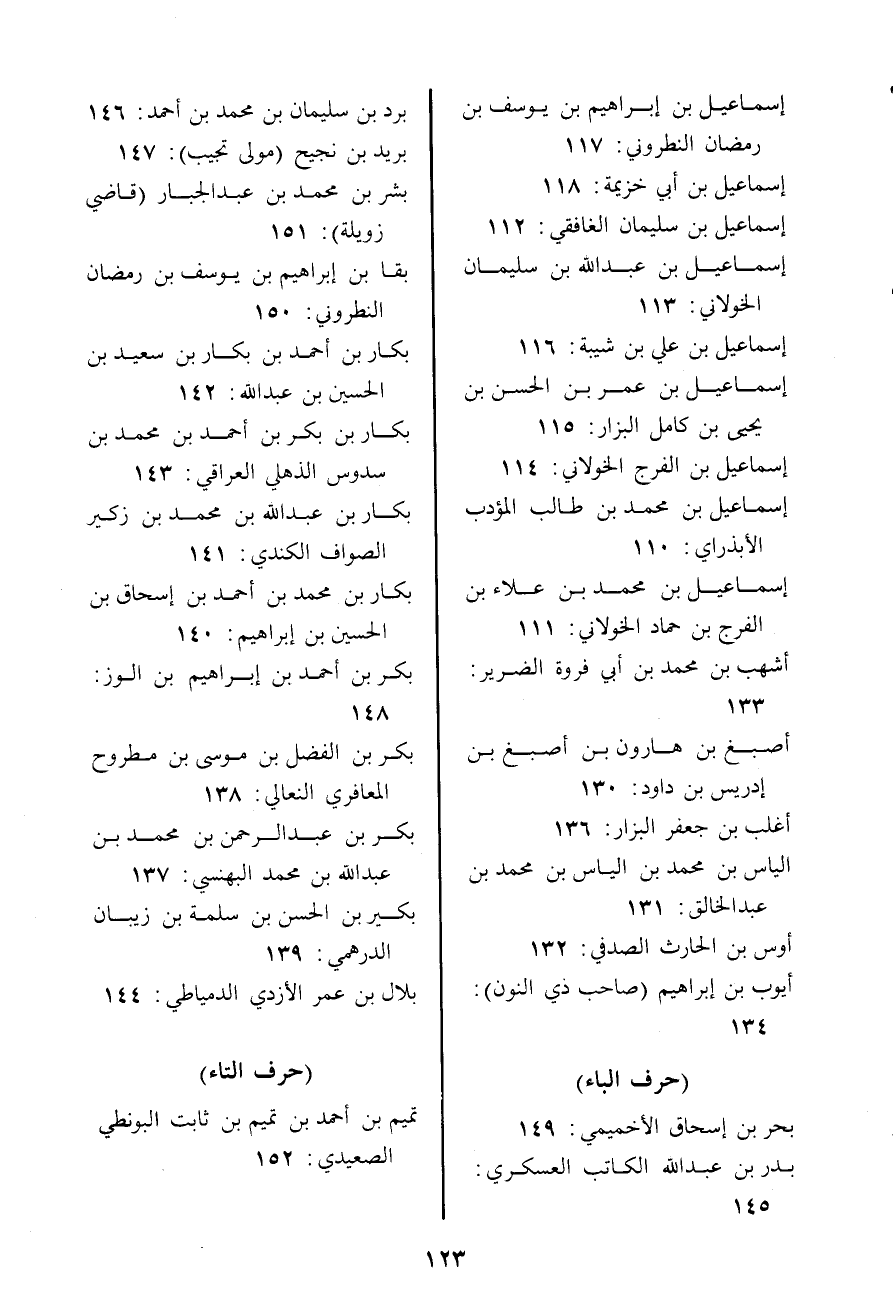 إسماعيل بن إبراهيم بن يوسف بن
رمضان النطروني: ١١٧
إسماعيل بن أبي خزيمة: ١١٨
إسماعيل بن سليمان الغافقي: ١١٢
إسماعيل بن عبدالله بن سليمان
الخولاني: ١١٣
إسماعيل بن علي بن شيبة: ١١٦
إسماعيل بن عمر بن الحسن بن
يحيى بن كامل البزار: ١١٥
إسماعيل بن الفرج الخولاني: ١١٤
إسماعيل بن محمد بن طالب المؤدب
الأبذراي: ١١٠
إسماعيل بن محمد بن علاء بن
الفرج بن حماد الخولاني: ١١١
أشهب بن محمد بن أبي فروة الضرير:
١٣٣
أصبغ بن هارون بن أصبغ بن
إدريس بن داود: ١٣٠
أغلب بن جعفر البزار: ١٣٦
الياس بن محمد بن الياس بن محمد بن
عبدالخالق: ١٣١
أوس بن الحارث الصدفي: ١٣٢
أيوب بن إبراهيم (صاحب ذي النون):
١٣٤
(حرف الباء)
بحر بن إسحاق الأخميمي: ١٤٩
بدر بن عبدالله الكاتب العسكري:
١٤٥
برد بن سليمان بن محمد بن أحمد: ١٤٦
بريد بن نجيح (مولى تجيب): ١٤٧
بشر بن محمد بن عبدالجبار (قاضي
زويلة): ١٥١
بقا بن إبراهيم بن يوسف بن رمضان
النطروني: ١٥٠
بكار بن أحمد بن بكار بن سعيد بن
الحسين بن عبدالله: ١٤٢
بكار بن بكر بن أحمد بن محمد بن
سدوس الذهلي العراقي: ١٤٣
بكار بن عبدالله بن محمد بن زكير
الصواف الكندي: ١٤١
بكار بن محمد بن أحمد بن إسحاق بن
الحسين بن إبراهيم: ١٤٠
بكر بن أحمد بن إبراهيم بن الوز:
١٤٨
بكر بن الفضل بن موسى بن مطروح
المعافري النعالي: ١٣٨
بكر بن عبدالرحمن بن محمد بن
عبدالله بن محمد البهنسي: ١٣٧
بكير بن الحسن بن سلمة بن زيبان
الدرهمي: ١٣٩
بلال بن عمر الأزدي الدمياطي: ١٤٤
(حرف التاء)
تميم بن أحمد بن تميم بن ثابت البونطي
الصعيدي: ١٥٢
١٢٣